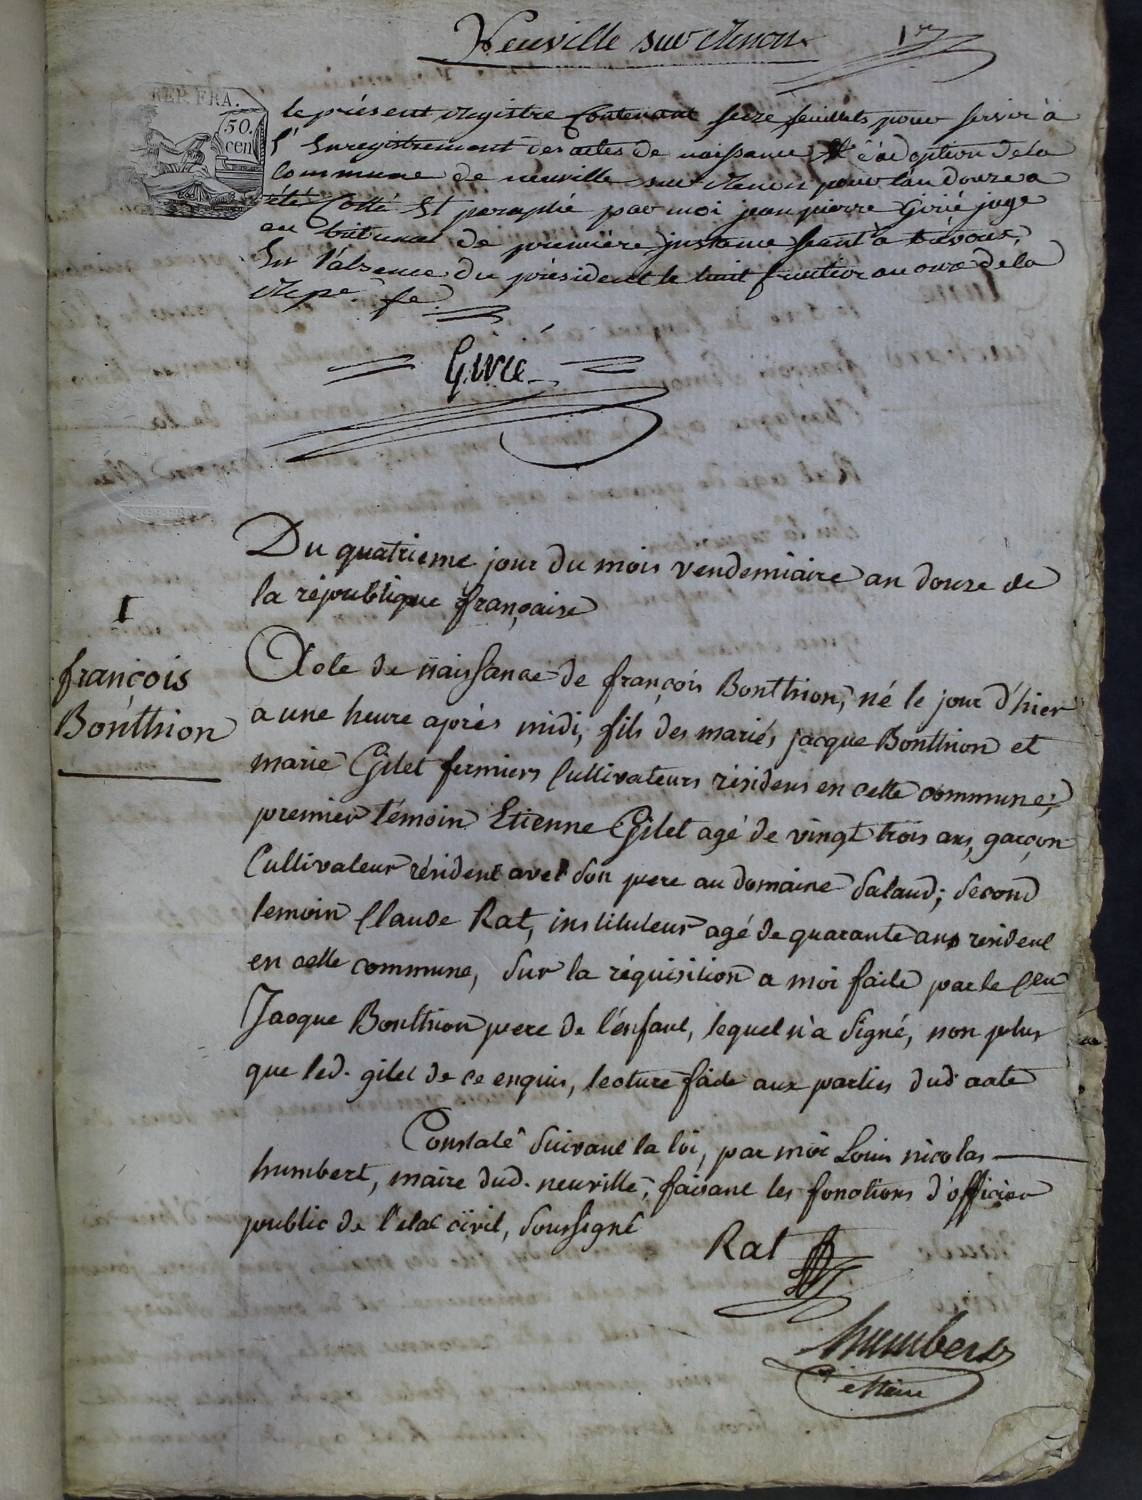 Neuville sur Renon
1er
REP. FRA.
50.
cen
le présent registre contenant seize feuillets pour servir à
l'enregistrement des actes de naissance et d'adoption de la
commune de neuville sur renon pour l'an douze a
été cotté et paraphé par moi jean pierre Givré juge
au tribunal de première instance séant à trévoux,
En l'absence du président le huit fructidor an onze de la
Repe. fe.
Givré
Du quatrieme jour du mois vendemiaire an douze de
la république française
I
françois
Bonthion
Acte de naissance de françois Bonthion, né le jour d'hier
a une heure après midi, fils des mariés jacque Bonthion et
marie Gilet fermiers Cultivateurs résidens en cette commune;
premier témoin Etienne Gilet agé de vingt trois ans, garçon
Cultivateur résident avec son pere au domaine Salaud; second
temoin Claude Rat, instituteur agé de quarante ans resident
en cette commune, sur la réquisition a moi faite par le Cen
Jacque Bonthion pere de l'enfant, lequel n'a signé, non plus
que led. gilet de ce enquis, lecture faite aux parties dud. acte
Constaté suivant la loi, par moi Louis nicolas
humbert, maire dud. neuville, faisant les fonctions d'officier
public de l'etat civil, soussigné
Rat
humbert
Maire